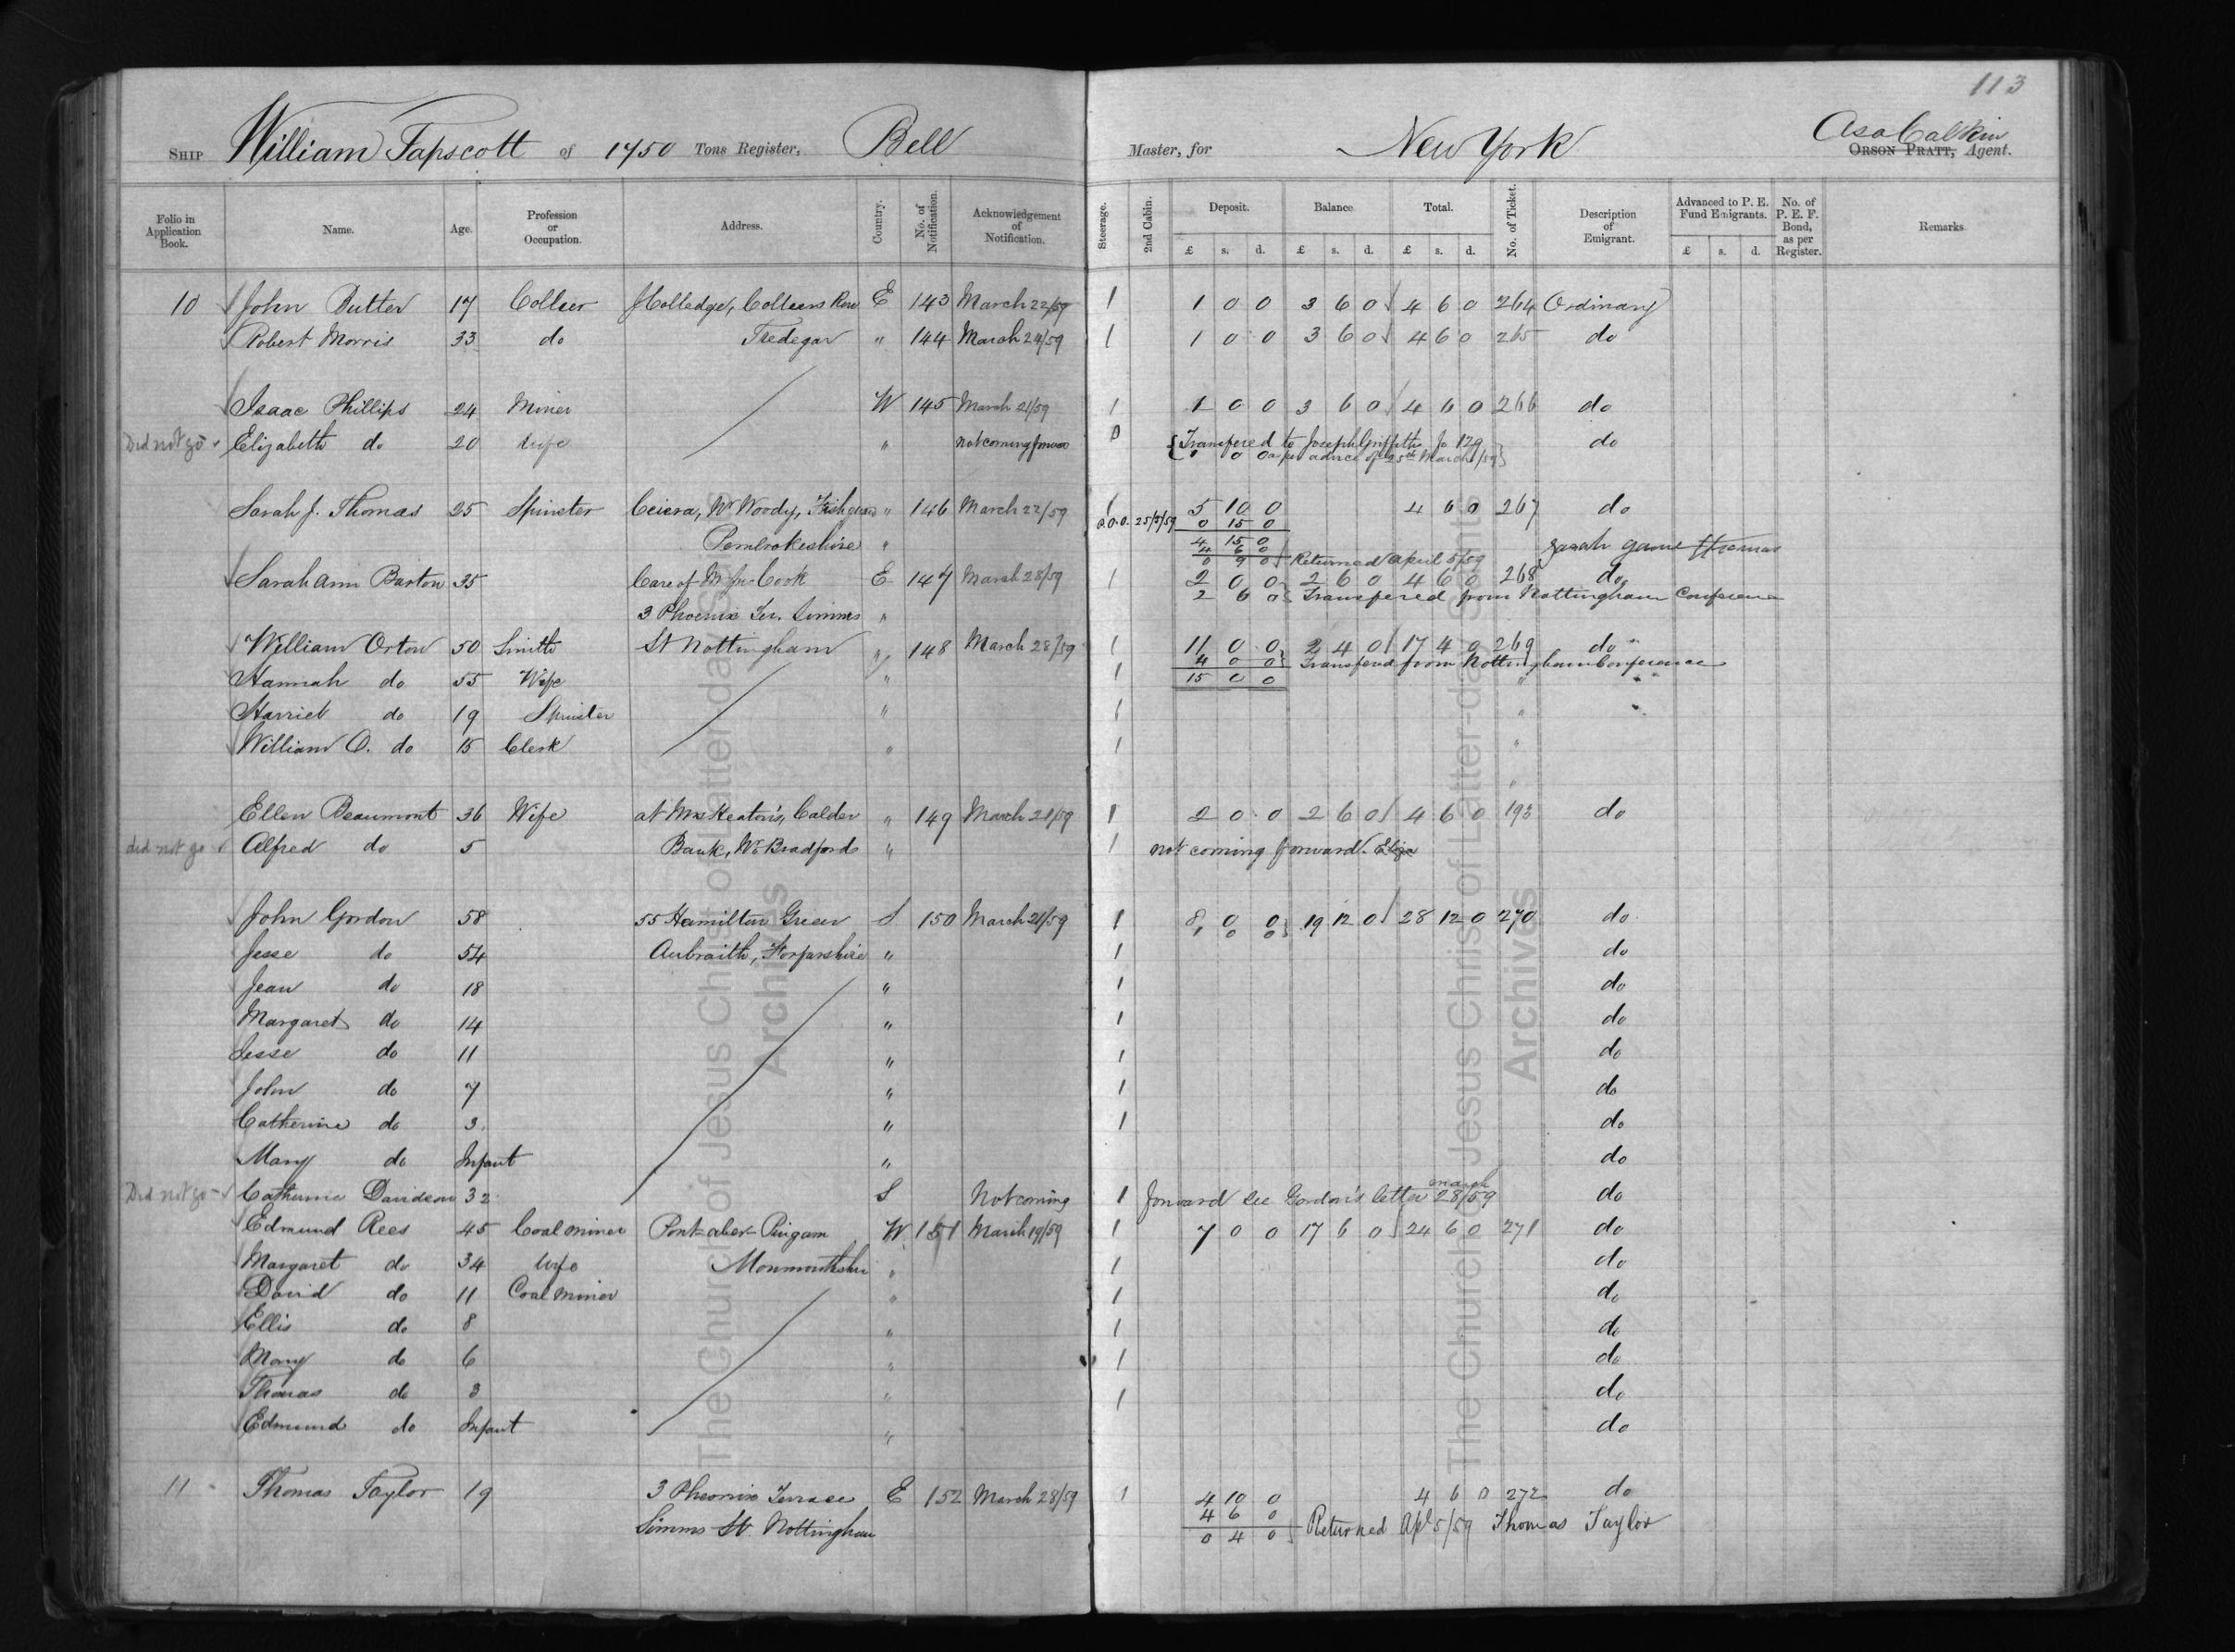 113
SHIP William Tapscott of 1750 Tons Register, Bell Master, for New York Asa Calkin ORSON PRATT, Agent.
Folio in Application Book. Name. Age. Profession or Occupation. Address. Country. No. of Notification. Acknowledgement of Notification. Steerage. 2nd Cabin. Deposit. Balance. Total. No. of Ticket. Description of Emigrant. Advanced to P. E. Fund Emigrants. No. of P. E. F. Bond, as per Register. Remarks
£ s. d. £ s. d. £ s. d. £ s. d.
10 John Butler 17 Collier Colliers Row E 143 March 22/59 1 1 0 0 3 6 0 4 6 0 264 Ordinary
Robert Morris 33 do Tredegar " 144 March 24/59 1 1 0 0 3 6 0 4 6 0 265 do
Isaac Phillips 24 Miner W 145 March 21/59 1 1 0 0 3 6 0 4 6 0 266 do
Did not go Elizabeth do 20 wife " not coming 0 Transfered to Joseph Griffiths fo 129 do
1 0 0 as per advice of 25th March/59
Sarah J. Thomas 25 Spinster " 146 March 22/59 1 5 10 0 4 6 0 267 do
25/3/59 0 15 0
Pembrokeshire " 4 15 0
4 6 0 Sarah Jane Thomas
0 9 0 Returned April 5/59
Sarah Ann Barton 35 Care of Mr Jno Cook E 147 March 28/59 1 2 0 0 2 6 0 4 6 0 268 do
3 Phoenix Ter. Simms " 2 6 0 Transfered from Nottingham Conference
William Orton 50 Smith St Nottingham " 148 March 28/59 1 11 0 0 2 4 0 17 4 0 269 do
4 0 0 Transfered from Nottingham Conference
Hannah do 55 Wife " 1 15 0 0 " "
Harriet do 19 Spinster " 1 "
William O. do 15 Clerk " 1 "
"
Ellen Beaumont 36 Wife at Mrs Heaton's, Calder " 149 March 21/59 1 2 0 0 2 6 0 4 6 0 193 do
did not go Alfred do 5 Bank, Nr Bradford " 1 not coming forward.
John Gordon 58 55 Hamilton Green S 150 March 21/59 1 8 0 0 19 12 0 28 12 0 270 do
1 0 0
Jesse do 54 Aubraith, Forfarshire " 1 do
Jean do 18 " 1 do
Margaret do 14 " 1 do
Jesse do 11 " 1 do
John do 7 " 1 do
Catherine do 3 " 1 do
Mary do Infant " do
Did not go Catherine Davidson 32 S Not coming 1 forward see Gordon's letter March 28/59 do
Edmund Rees 45 Coal miner Pont-aber-Pingam W 151 March 19/59 1 7 0 0 17 6 0 24 6 0 271 do
Margaret do 34 wife " 1 do
David do 11 Coal Miner " 1 do
Ellis do 8 " 1 do
Mary do 6 " 1 do
Thomas do 3 " 1 do
Edmund do Infant " do
11 Thomas Taylor 19 3 Pheonix Terrace E 152 March 28/59 1 4 10 0 4 6 0 272 do
Simms St. Nottingham 4 6 0
0 4 0 Returned Apl 5/59 Thomas Taylor
The Church of Jesus Christ of Latter-day Saints
Archives
The Church of Jesus Christ of Latter-day Saints
Archives